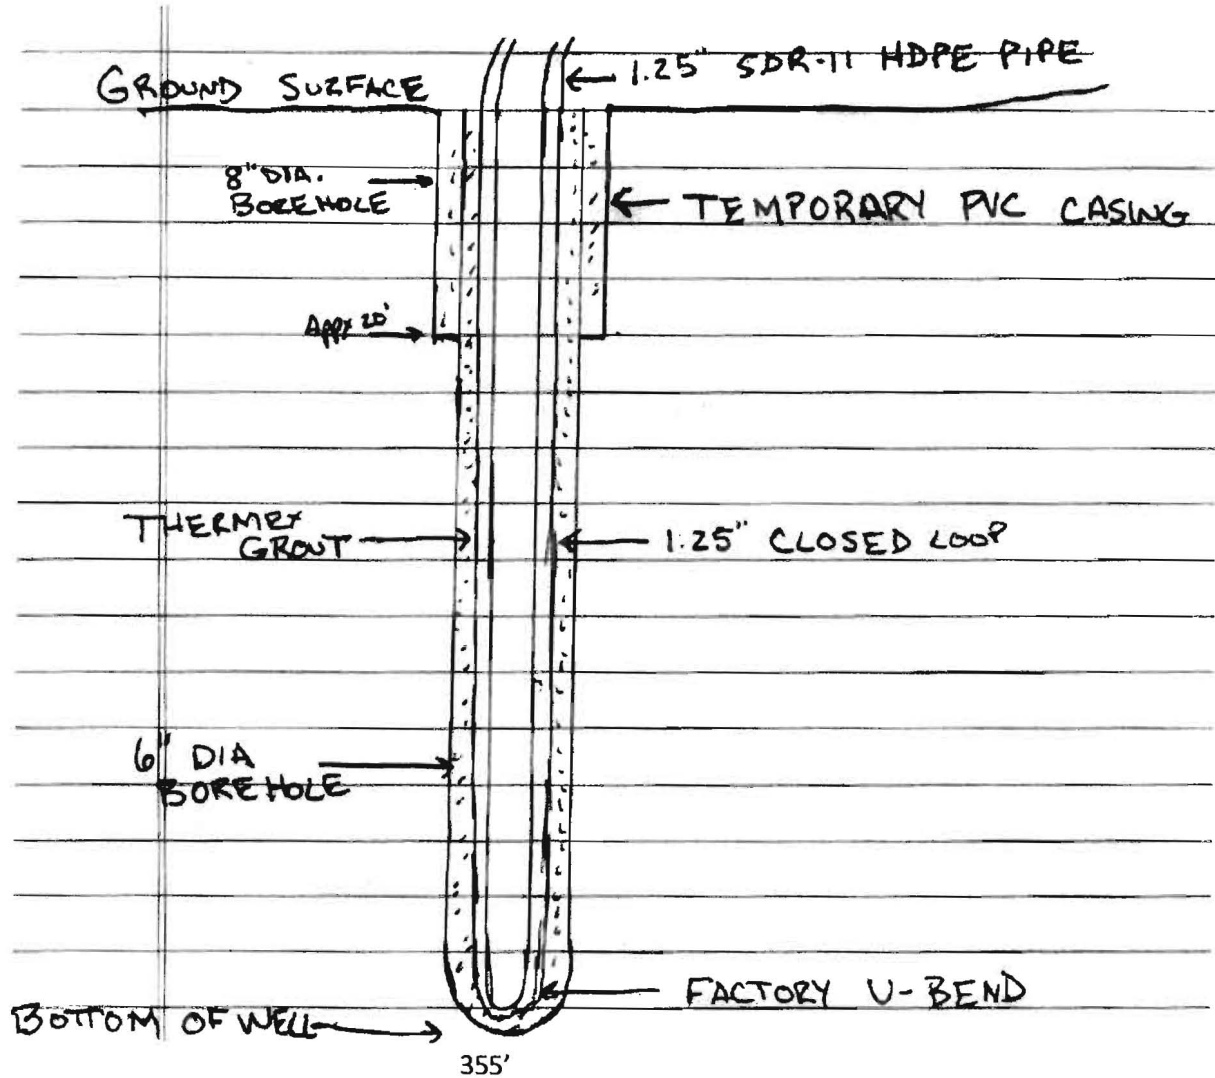 1.25" SDR-11 HDPE PIPE
GROUND SURFACE
8" DIA.
BOREHOLE
TEMPORARY PVC CASING
Appx 20'
THERMEX
GROUT
1.25" CLOSED LOOP
6" DIA
BOREHOLE
FACTORY U-BEND
BOTTOM OF WELL
355'